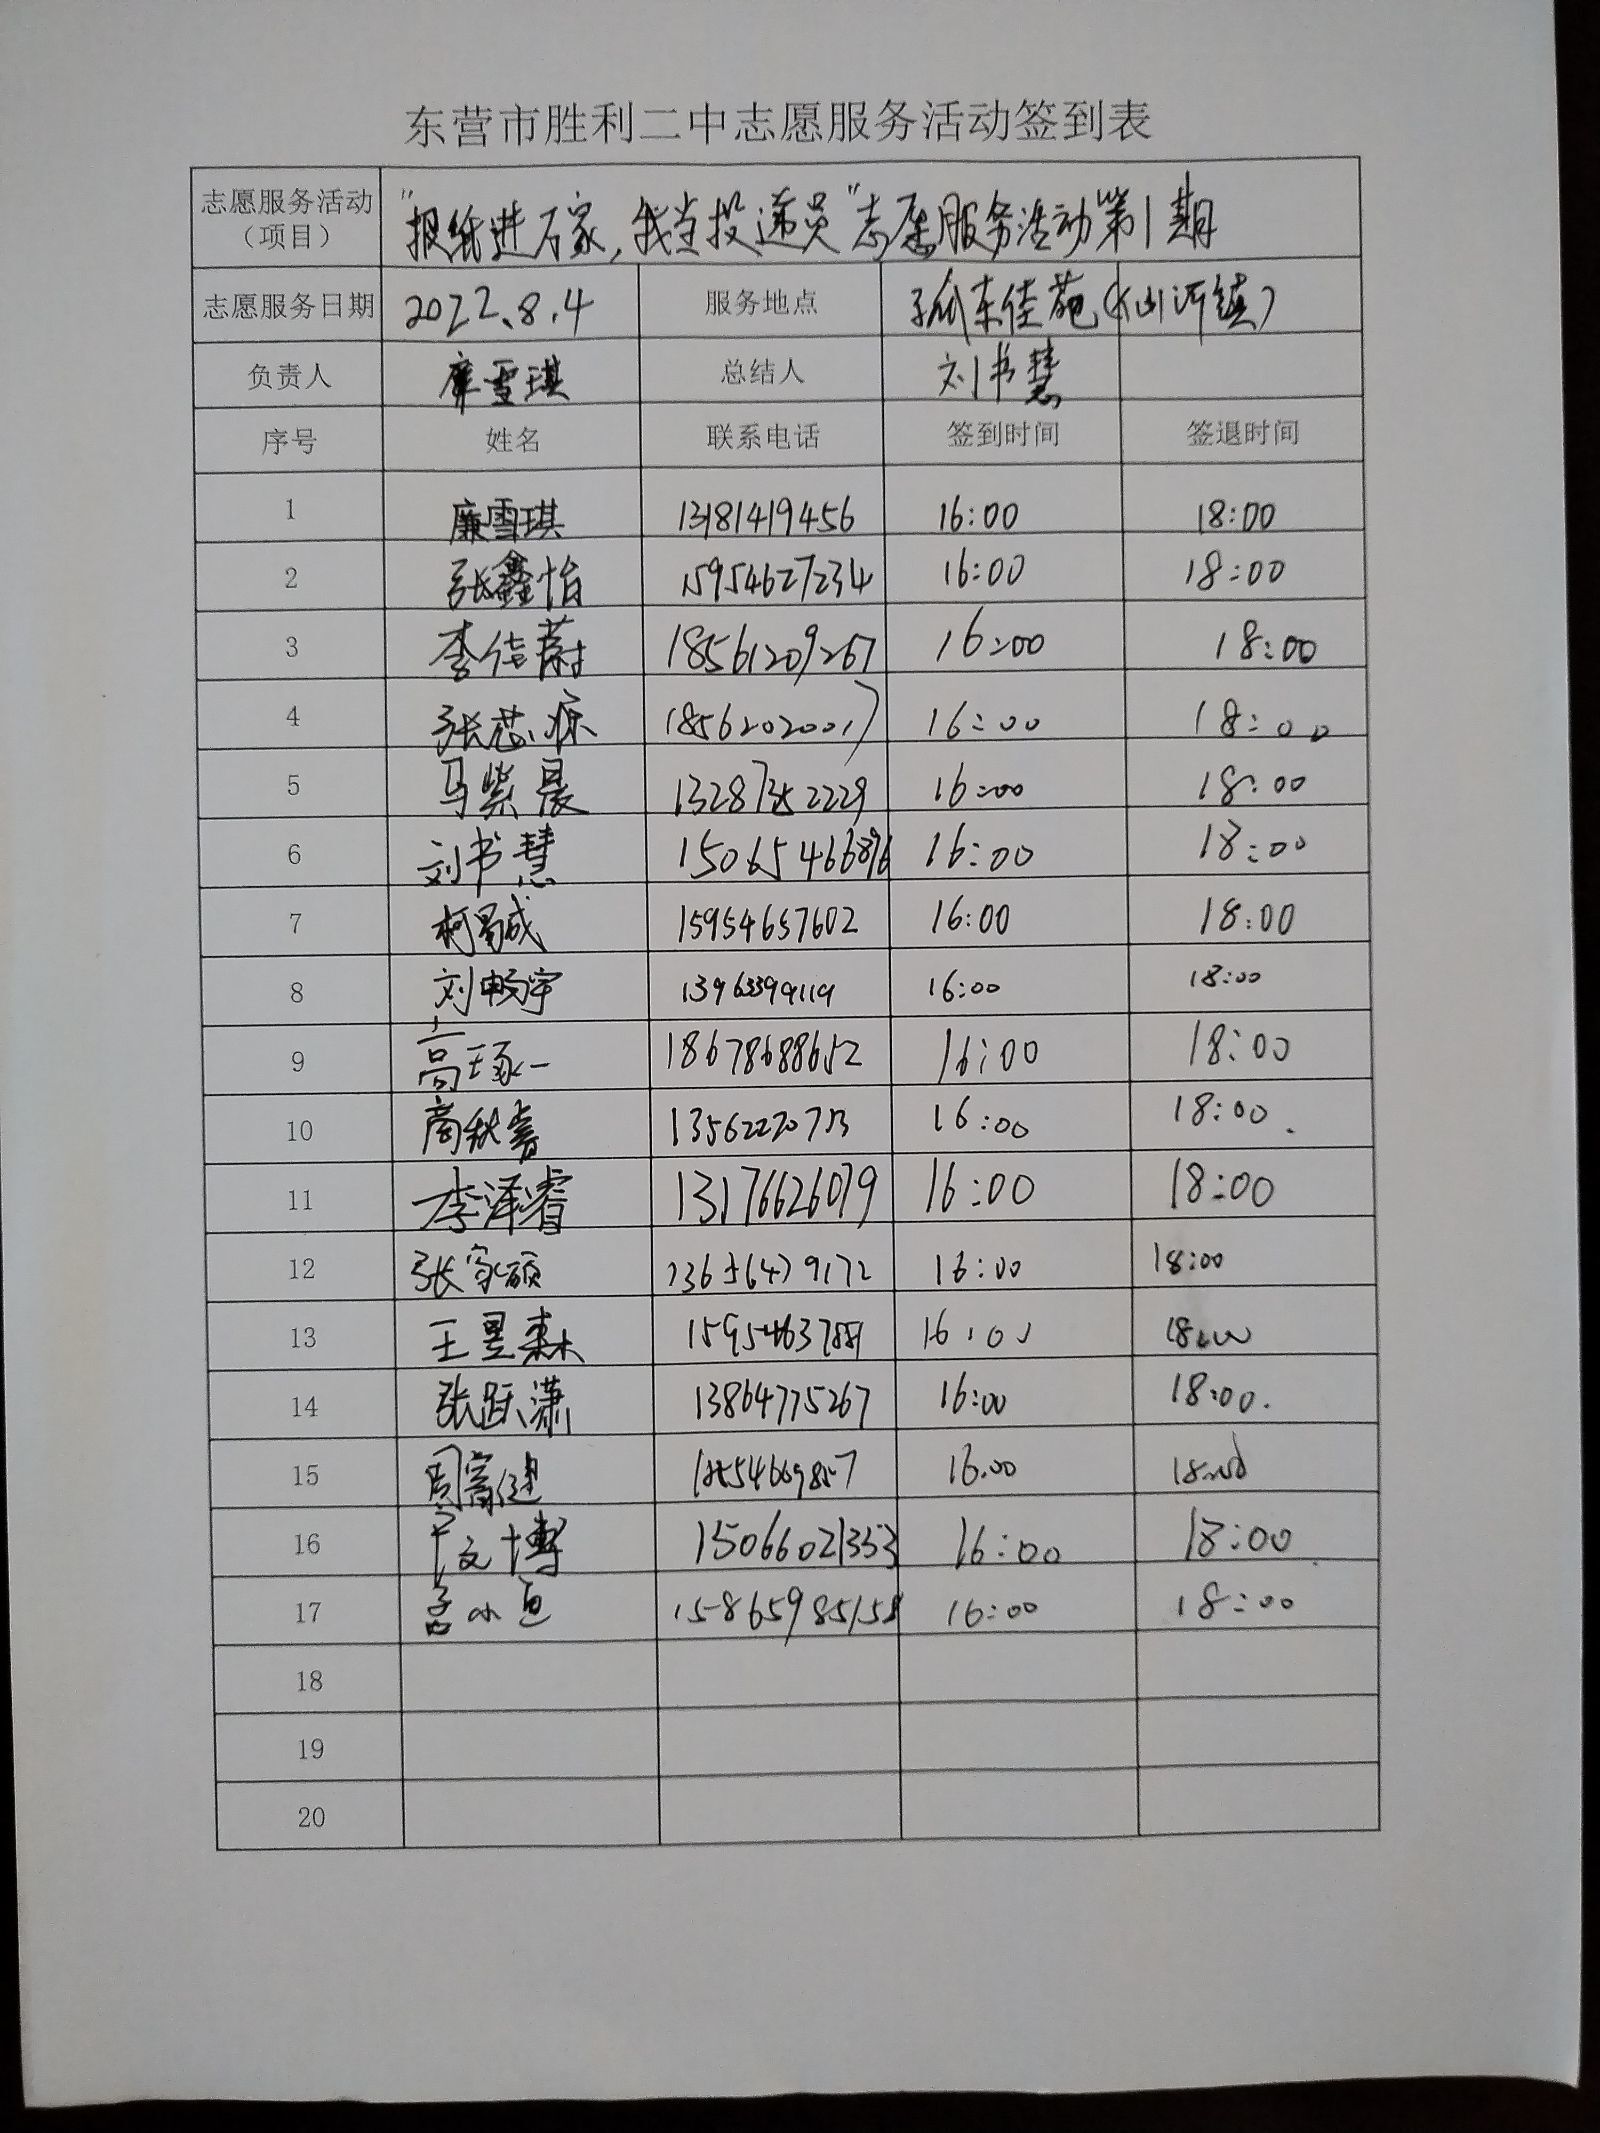 东营市胜利二中志愿服务活动签到表
志愿服务活动（项目） "报纸进万家,我当投递员"志愿服务活动第1期
志愿服务日期 2022.8.4 服务地点 孤东佳苑(六山沂镇)
负责人 廉雪琪 总结人 刘书慧
序号 姓名 联系电话 签到时间 签退时间
1 廉雪琪 13181419456 16:00 18:00
2 张鑫怡 15954627234 16:00 18:00
3 李佶蔚 18561209267 16:00 18:00
4 18562020017 16:00 18:00
5 马紫晨 16:00 18:00
6 刘书慧 16:00 18:00
7 15954657602 16:00 18:00
8 刘畅宇 13963399119 16:00 18:00
9 高琢一 18678688652 16:00 18:00
10 16:00 18:00
11 李泽睿 13176626079 16:00 18:00
12 张家硕 16:00 18:00
13 王昱森 18:00
14 张跃潇 13864775267 16:00 18:00.
15 周富健 16.00
16 文博 15066021353 16:00 18:00
17 15865985158 16:00 18:00
18
19
20